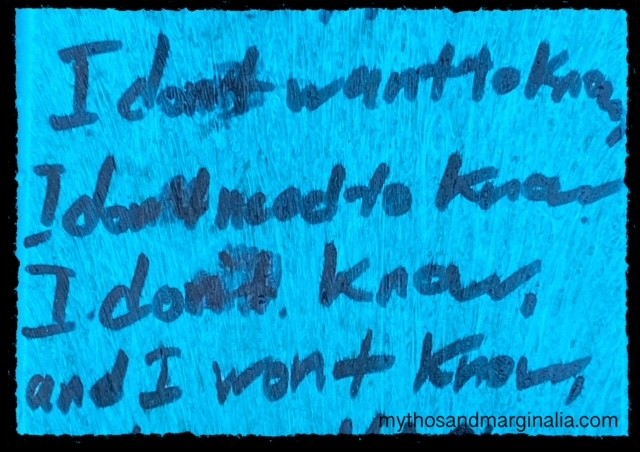 I don't want to know,
I don't need to know
I don't know,
and I won't know,
mythosandmarginalia.com